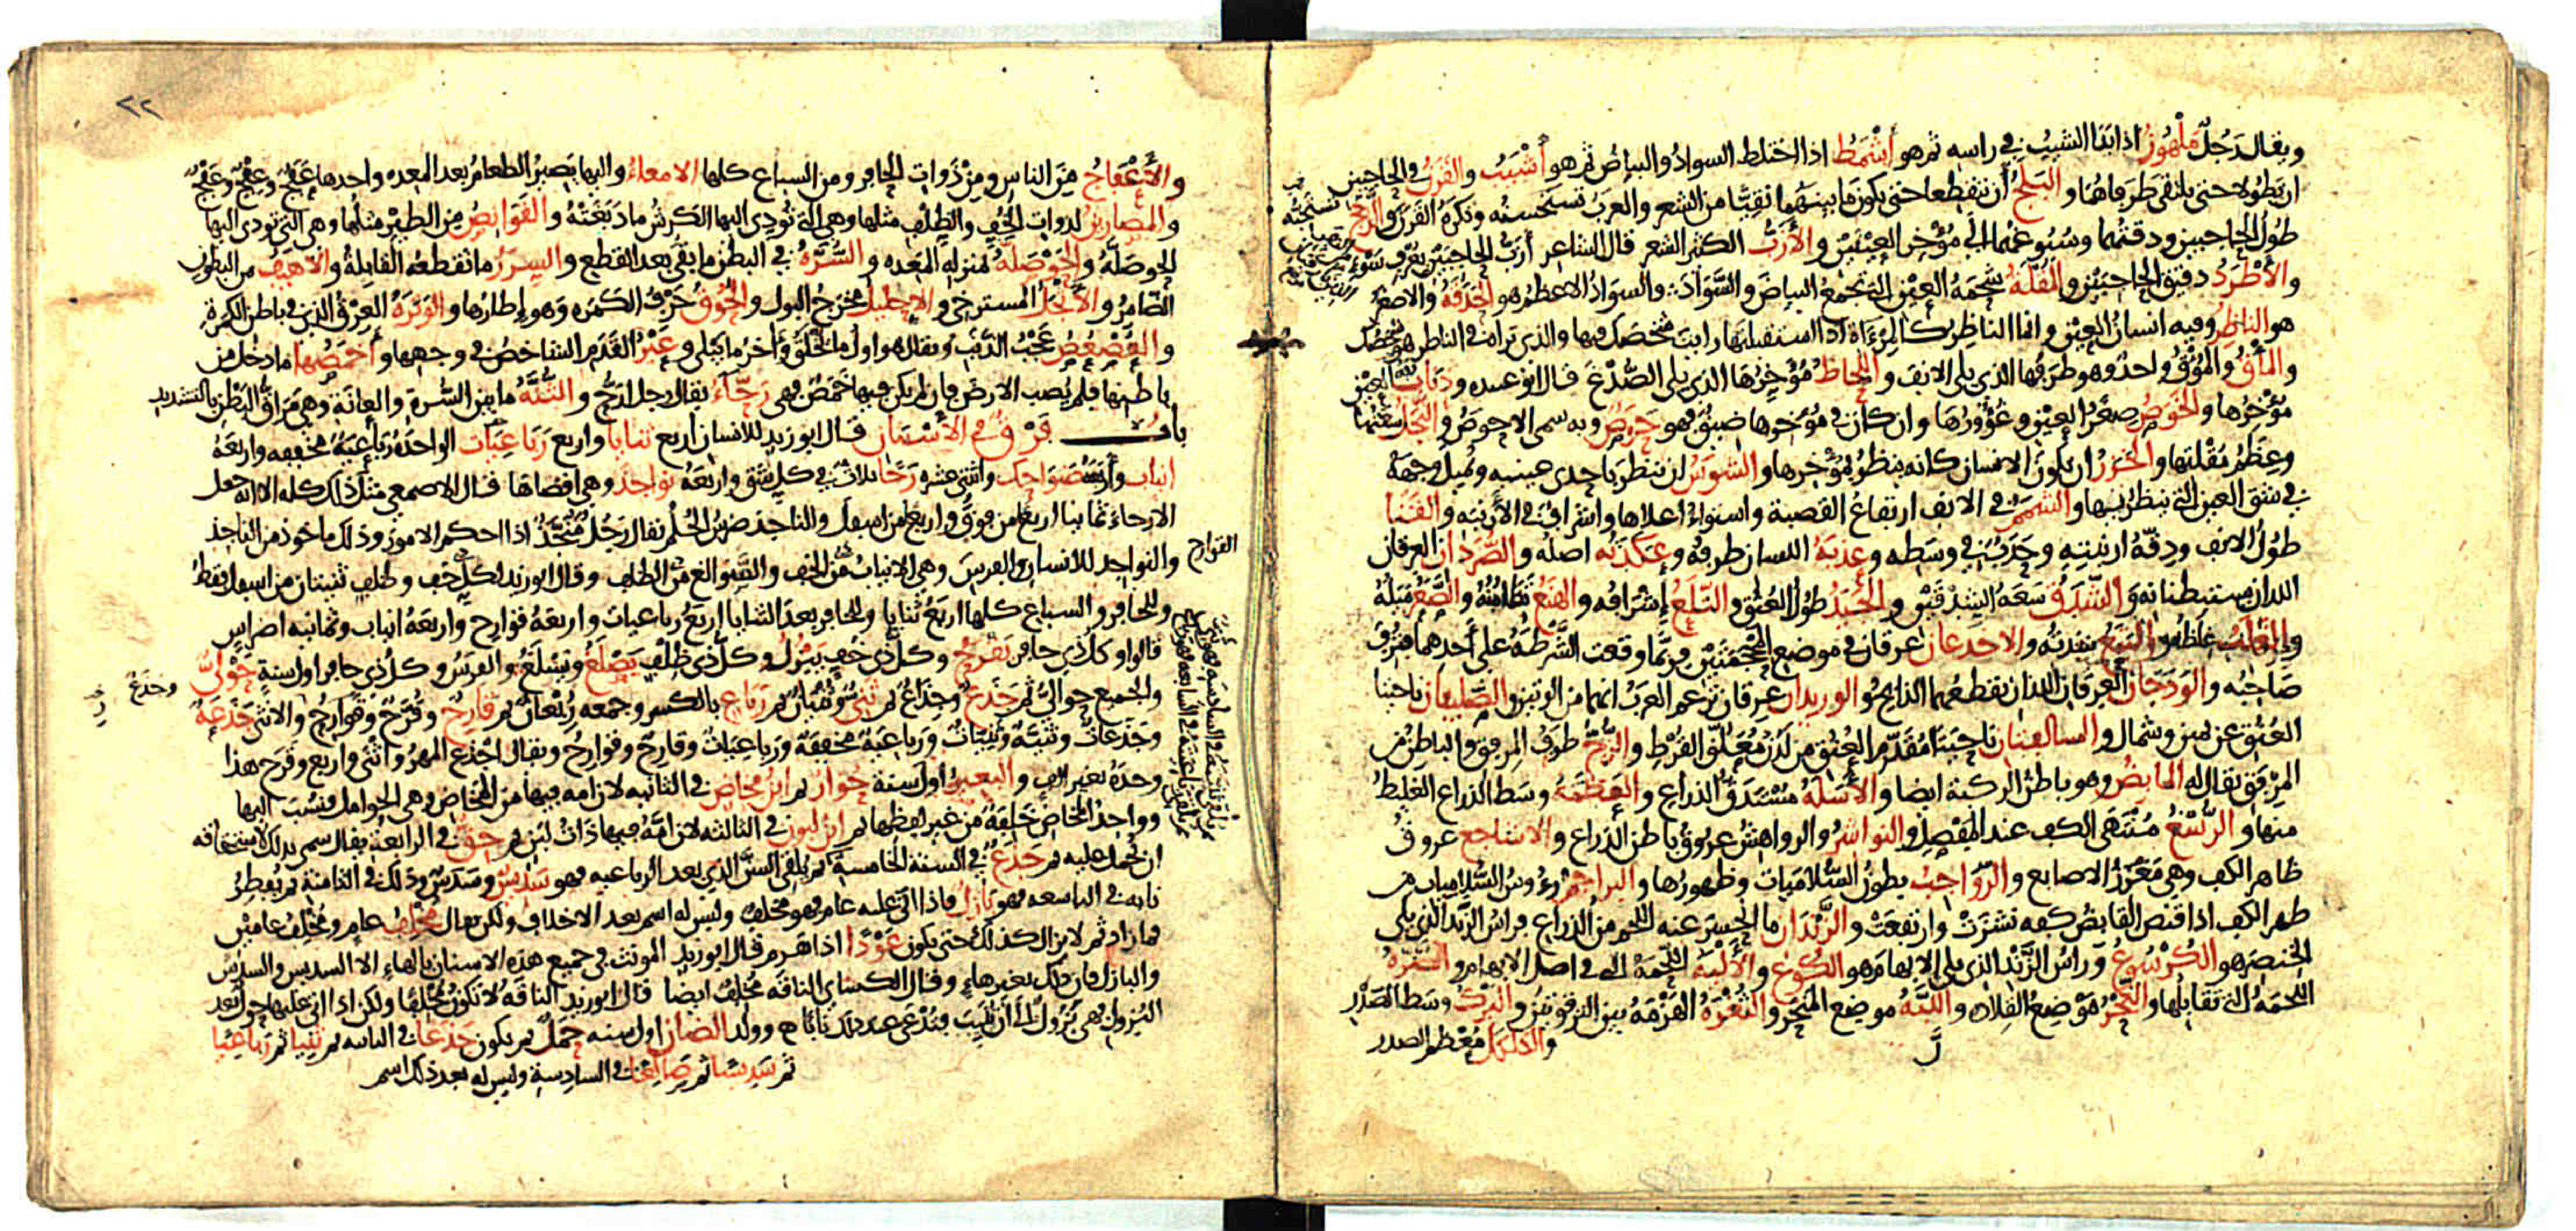 ويقال رَجُلٌ مَلْهُوزٌ اذا بَدَا الشيبُ في راسه ثم هو أشْمَطُ اذا اختلط السوادُ والبياضُ ثم هو أشْيَبُ والقَرَنُ في الحاجبين
ان يَطُولا حتى يلتقى طَرَفاهُما والبَلَجُ أن ينقطعا حتى يكونَ ما بينهما نقيًّا من الشعر والعربُ تستحسنه وتكرَهُ القَرَنَ والزَّجَجُ
طُولُ الحاجبين ودقّتُهما وسُبُوغُهما الى مُؤْخِر العينَيْن والأَزَبُّ الكثير الشعر قال الشاعر أَزَبُّ الحاجِبَيْنِ بعَوْفِ سَوْءٍ
والأَطْرَدُ دقيق الحاجبَيْن والمُقْلَةُ شَحْمَةُ العيْنِ التي تجمَعُ البياضَ والسَّوَادَ والسوادُ الاعظمُ هو الحَدَقَةُ والاصغرُ
هو الناظِرُ وفيه انسانُ العيْن وانما الناظرُ كالمِرْءَاةِ اذا استقبلتَها رايتَ شخصَك فيها والذي تراه في الناظر هو شخصُك
والمَأْقُ والمُؤْقُ واحدٌ وهو طَرَفُها الذي يلي الانفَ واللِّحاظُ مُؤْخِرُها الذي يلي الصُّدْغَ قال ابو عبيده وذنابة العيْن
مُؤْخِرُها والخَوَصُ صِغَرُ العيْن وغُؤُورُهَا وان كان في مُؤْخِرها ضيقٌ فهو حَوَصٌ وبه سمى الاحوصُ والنَّجَلُ سعتُها
وعِظَمُ مُقْلتِها والخَزَرُ ان يكونَ الانسان كانه ينظرُ بمُؤْخِرها والشوَسُ ان ينظر باحدى عينيه ويميل وجههُ
في شق العين التي ينظر بها والشَّمَمُ في الانف ارتفاعُ القصبة واستواءُ اعلاها واشرافٌ في الأَرْنبه والقَنَا
طُولُ الانف ودقّةُ ارنبته وحَدَبٌ في وسَطه وعَذَبَةُ اللسان طرفُه وعَكَدَتُه اصلُه والصُّرَدَان العرقان
اللذان يستبطنانه والشَّدَقُ سَعَةُ الشِدْقَيْن والجَيَدُ طُولُ العُنُق والتَّلَعُ إشْرَافُه والهَنَعُ تطامُنُه والصَّعَرُ مَيْلُهُ
والغَلَبُ غِلَظُه والبَتَعُ شِدتُه والاخدعان عرقان في موضع المحْجَمَتَيْن ورُبَّما وقعت الشَّرْطَةُ على أحدهما فنُزِفَ
صَاحِبُه والوَدَجَان العِرقان اللذان يقطعهما الذابح والوريدان عِرقان تزعم العَرَبُ انهما من الوتين والصَّليفان ناحيتا
العُنُق عن يمين وشمال والسالفتان ناحيتا مُقدّم العُنُق من لَدُن مُعَلَّق القُرْطِ والزُّجُّ طرَفُ المرفق والباطِنُ من
المِرْفق يقال له المأبِضُ وهو باطنُ الركبة ايضا والأَسَلَةُ مُسْتَدَقُّ الذراع والعَظَمَةُ وسَط الذراع الغليظُ
منها والرُّسْغُ مُنْتَهَى الكف عند المَفْصِل والنواشرُ والرواهشُ عروقُ باطن الذراع والاشاجع عروقُ
ظاهر الكف وهي مَغْرِزُ الاصابع والرَّوَاجبُ بطونُ السُّلَامَيَات وظهورُها والبراجمُ رُءُوسُ السُّلاميات من
ظهر الكف اذا قبض القابضُ كفه نشَزَتْ وارتفعَتْ والزَّنْدَانِ ما انحسَرَ عنه اللحم من الذراع فراسُ الزَّنْد الذي يلي
الخنصرَ هو الكُرْسُوعُ وراسُ الزَّنْد الذي يلى الابهامَ هو الكُوعُ والأَلْيَةُ اللحمَةُ التي في اصل الابهام والضَّرَّةُ
اللحمَةُ التي تقابلها والنَّحْرُ مَوْضعُ القِلادة واللَّبَّةُ موضع المَنْحَر والثُّغْرَةُ الهَزْمَةُ بين التَّرْقُوَتَيْن والبَرْكُ وسَط الصَّدْر
والكَلْكَلُ مُعْظم الصدر
٢٢
والأَعْفَاجُ مِنَ الناس ومن ذَوات الحافر ومن السباع كلها الامعاءُ واليها يَصيرُ الطعامُ بعد المعده واحدها عَفَجٌ وعِفْجٌ وعَفْجٌ
والمصارينُ لذوات الخُفِّ والظِّلْف مثلها وهي التي تُودي اليها الكَرِشُ ما دَبَغَتْهُ والقَوَانِصُ من الطيْر مثلُها وهي التي تودي اليها
الحَوصَلَّهُ والحَوْصَلَهُ بمنزله المعَده والسُّرَّةُ في البطن ما بَقِيَ بعد القطع والسِّرَرُ ما تقطعه القابلةُ والاهْيَفُ من البطون
الضّامرُ والأَثْجَلُ المسترخي والاحليلُ مخرجُ البول والحُوقُ حَرْفُ الكَمَره وهو إطارُها والوَتَرَةُ العِرْقُ الذي في باطن الكمرة
والعُصْعُصُ عَجْبُ الذَّنَب ويقال هو اول ما يُخْلَقُ وآخر ما يَبْلى وعَيْرُ القَدَم الشاخصُ في وجهها وأخْمَصُها ما دخل من
باطنها فلم يُصِب الارضَ فان لم يكن فيها خَمَصٌ فهي رَحّاءُ يقال رجل ارَحُّ والثُّنَّةُ ما بين السُّرة والعانَة وهي مَرَاقُّ البَطْن بالتشديد
باب فَرْقٍ في الأَسْنَانِ قال ابو زيدٍ للانسان اربع ثنايا واربع رَبَاعِيَاتٍ الواحدة رَبَاعِيَةٌ مخففه واربعَةُ
انياب وأربعَةُ ضَواحِك واثنتى عشرة رَحًا ثلاثٌ في كل شِقٍّ واربعَةُ نواجذَ وهي اقصاها قال الاصمعي مثل ذلك كله الا انه جعل
الارحاءَ ثمانيا اربعًا من فوقُ واربعًا من اسفل والناجذ ضِرْسُ الحُلُم يقال رَجُلٌ مُنَجَّذٌ اذا احكم الامورَ وذلك ماخوذ من الناجذ
والنواجذ للانسان والفرَس وهي الانيابُ من الخف والسَّوالغ من الظلف وقال ابو زيد لكل خف وظلف ثنيتان من اسفل فقطُ
وللحافر والسباع كلها اربَعُ ثنايا وللحافر بعد الثنايا اربَعُ رباعيات واربعَةُ قوارح واربعَةُ انياب وثمانيه اضراس
القوارح
قالوا وكلُّ ذي حافر يَقْرَحُ وكل ذي خُفٍّ يَبْزُلُ وكل ذي ظِلْفٍ يَصْلَغُ ويَسْلَغُ والفرسُ وكلُّ ذي حافر اول سنةٍ حَوْليٌّ
والجميع حواليُّ ثم جَذَعٌ وجِذَاعٌ ثم ثَنِيٌّ وثُنْيَانٌ ثم رَبَاعٍ بالكسر وجمعه رُبْعانٌ ثم قارِحٌ وقُرَّحٌ وقَوارِحُ والانثى جَذَعةٌ
وجَذَعاتٌ وثنِيَّةٌ وثنيّاتٌ ورَباعيَةٌ مخففَةٌ ورَباعيَاتٌ وقارحٌ وقوارحُ ويقال اجْذَع المهرُ واثنَى واربع وقَرَح هذا
وحدَهُ بغير الف والبعيرُ اول سنة حُوارٌ ثم ابنُ مخاضٍ في الثانيه لان امه فيها من المخاض وهي الحوامل فنسب اليها
وواحدُ المخاض خَلِفَةٌ من غير لفظها ثم ابن لبونٍ في الثالثه لان امّهُ فيها ذاتُ لبن ثم حِقٌّ في الرابعة يقال سمي بذلك لاستحقاقه
ان يُحمل عليه ثم جَذَعٌ في السنة الخامسة ثم يلقى السن الذي بعد الرباعيه فهو سَدِيسٌ وسَدَسٌ وذلك في الثامنة ثم يُفْطِرُ
نابه في التاسعه فهو بازِلٌ فاذا اتى عليه عامٌ فهو مخلفٌ وليس له اسم بعد الاخلاف ولكن يقال مُخْلِفُ عامٍ ومُخْلِفُ عامَيْن
فما زاد ثم لا يزال كذلك حتى يكون عَوْدًا اذا هَرم قال ابو زيد المونث في جميع هذه الاسنان بالهاء الا السديسَ والسدَسَ
والبازلَ فان ذلك بغير هاءٍ وقال الكسائي الناقة مُخلِفٌ ايضا قال ابو زيد الناقة لا تكونُ مُخْلِفًا ولكن اذا اتى عليها حول بعد
البُزول فهي بَزُولٌ الى أن تُنَيِّبَ فتُدْعى عند ذلك نابًا وولد الضأن اول سنه حَمَلٌ ثم يكون جَذَعا في الثانيه ثم ثنيا ثم رَبَاعِيًا
ثم سَدِيسًا ثم صَالِغًا في السادسة وليس له بعد ذلك اسم